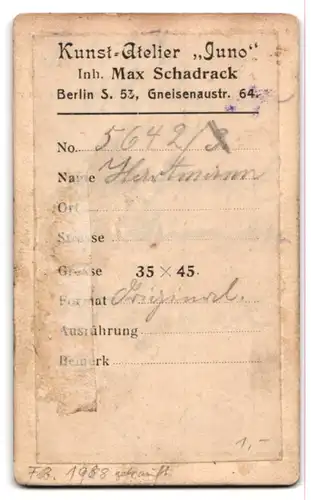 Kunst-Atelier „Juno“
Inh. Max Schadrack
Berlin S. 53, Gneisenaustr. 64.
No. 5642/
Name Hartmann
Ort
Strasse
Grösse 35 × 45.
Format Original.
Ausführung
Bemerk
1,-
F.B. 1988